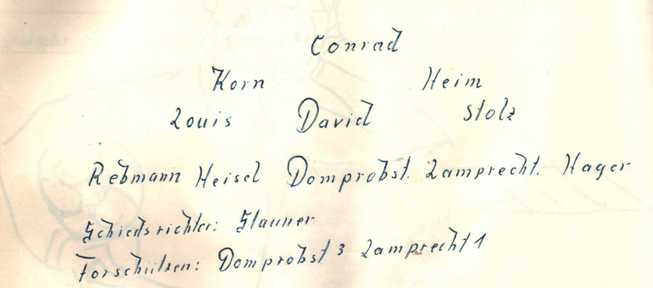 Conrad
Korn Heim
Louis David Stolz
Rebmann Heisel Domprobst. Lamprecht. Hager
Schiedsrichter: Stauner
Torschützen: Domprobst 3 Lamprecht 1